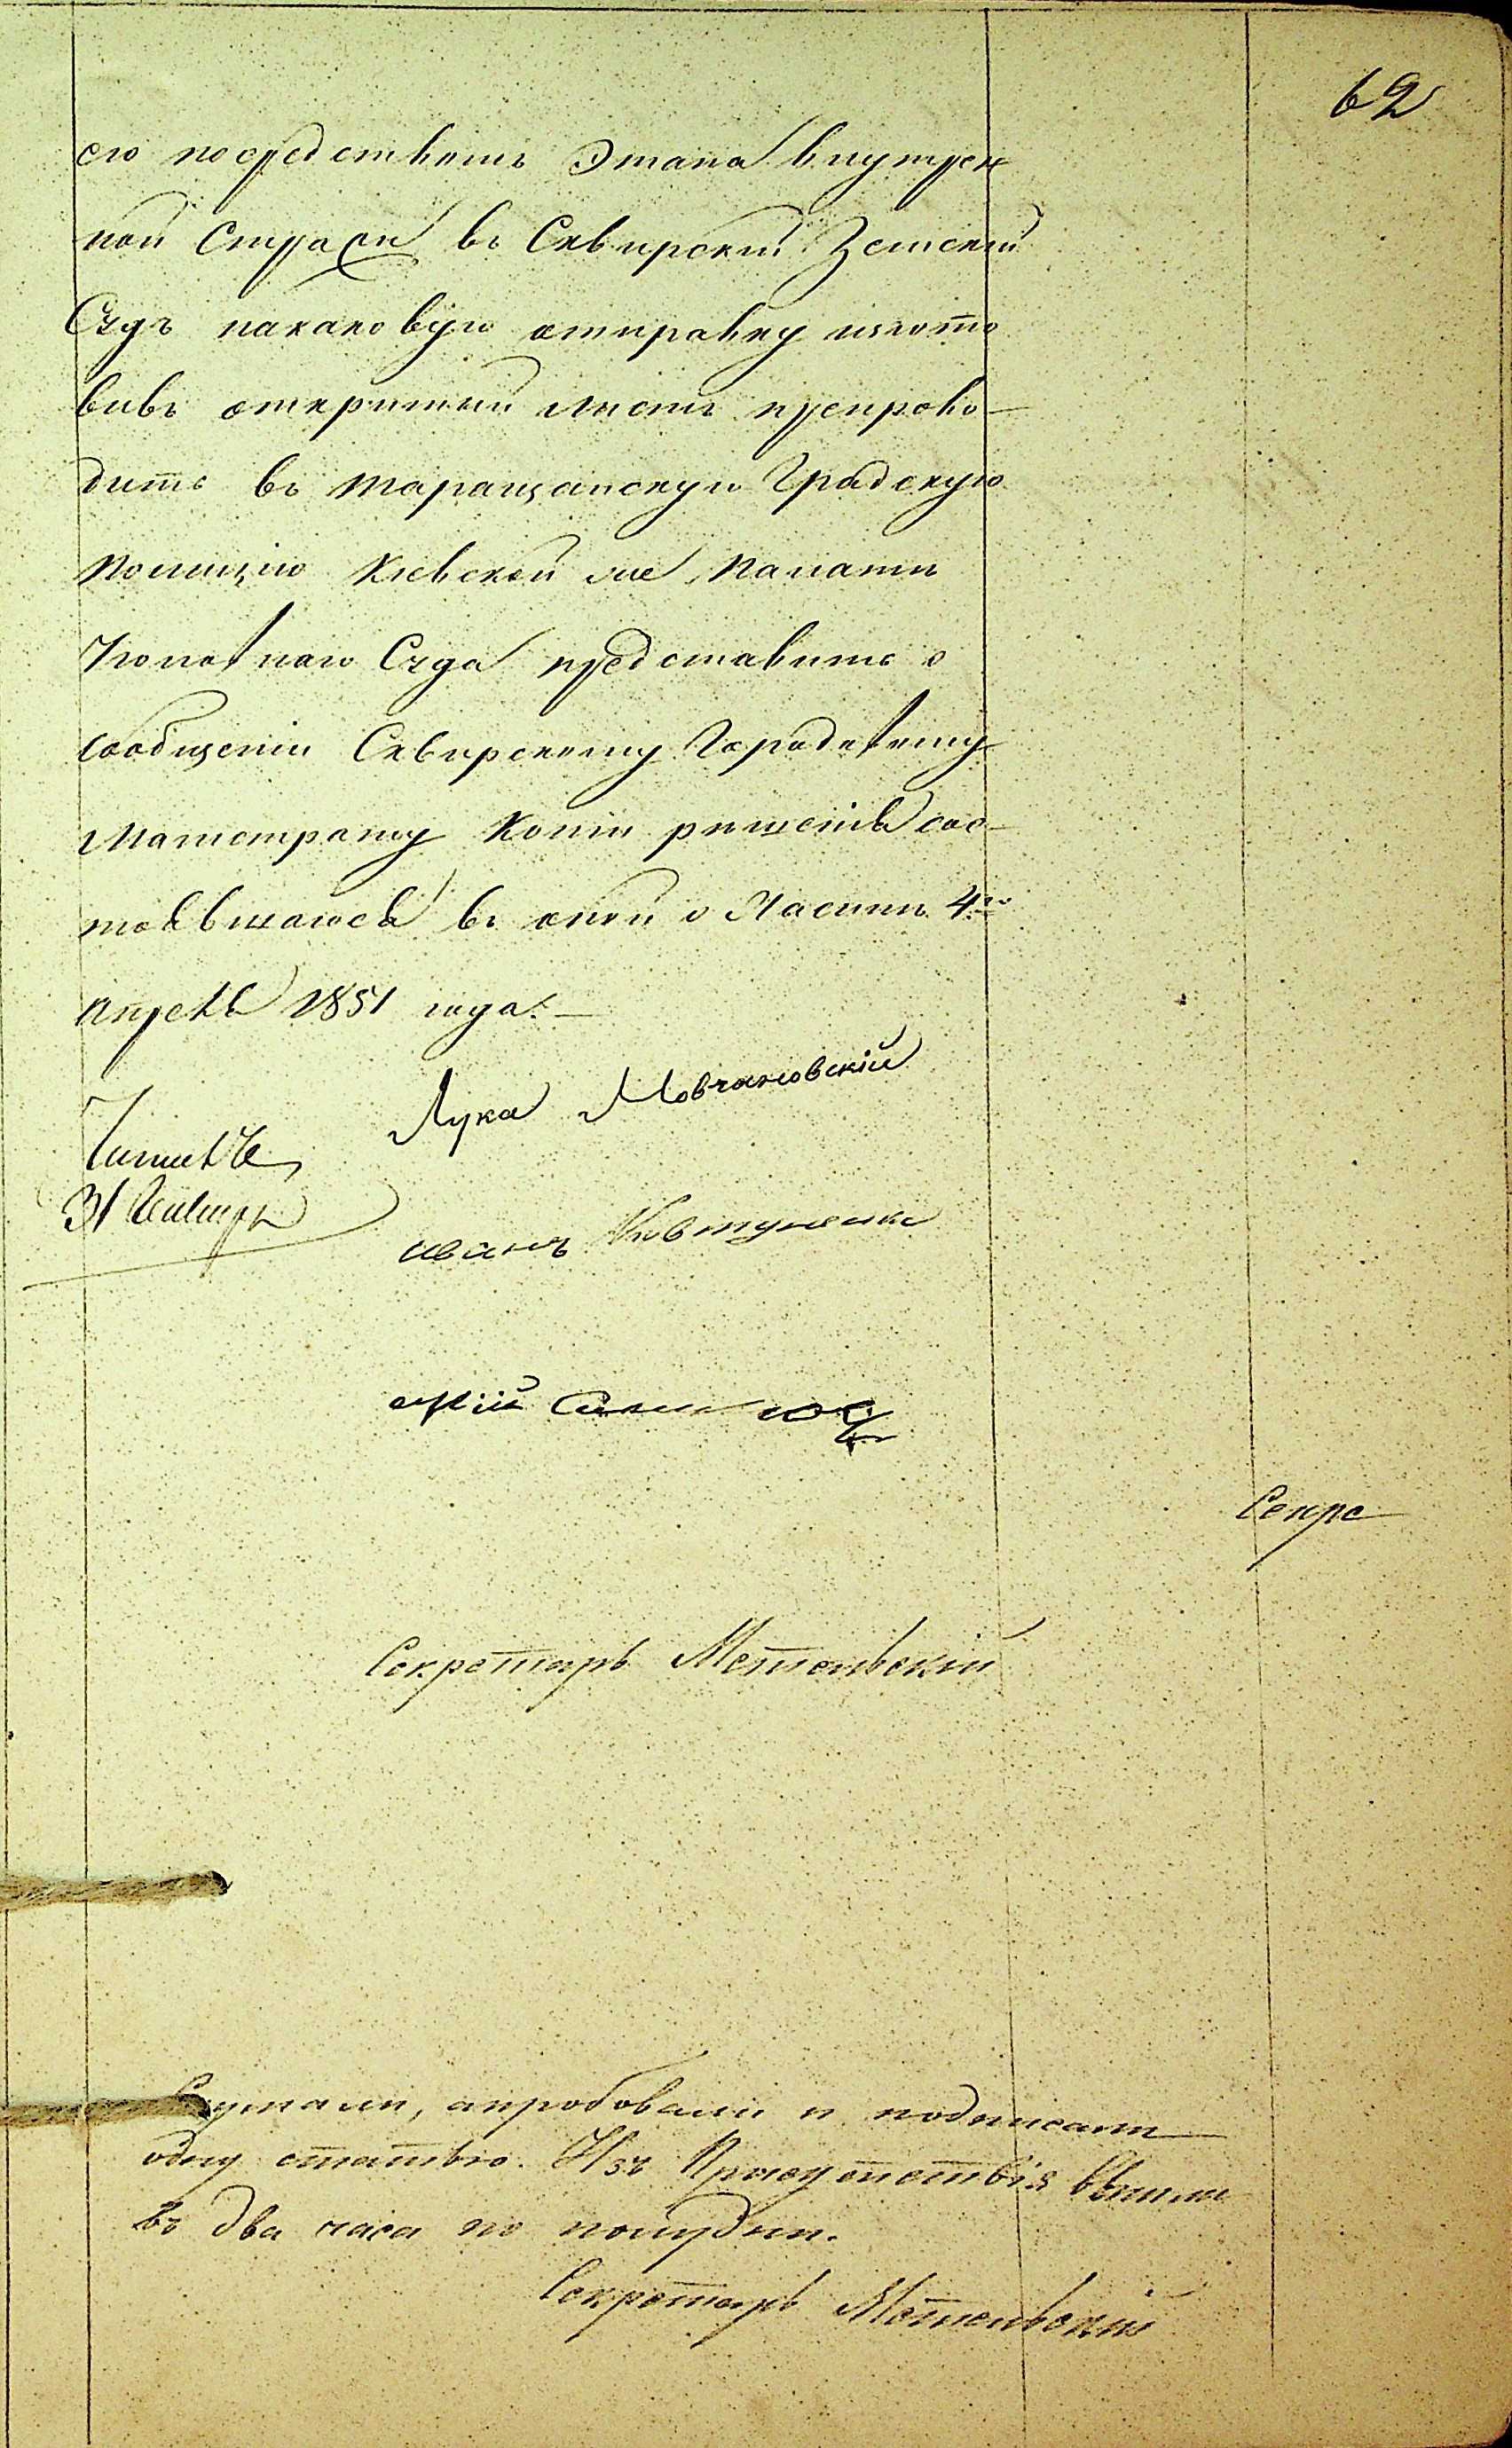 62
его посредствомъ Этапа внутрен
ной Стражи въ Сквирский Земский
Судъ накаковую отправку изгото
вивъ открытый листъ препрово-
дить въ таращанскую Градскую
полицію Киевской же Палаты
Уголовнаго Суда представить о
сообщении Сквирскому Городовому
Магистрату копіи решенія сос-
тоявшагося въ оной о 4го
апреля 1851 года.—
Лука Мовчановскій
Читалъ
Иванъ Ковтуненко
Секре
Секретарь Метельскій
Слушали, апробовали и подписали
одну статью. Изъ Присутствія вышли
въ два часа по полудни.
Секретарь Метельскій